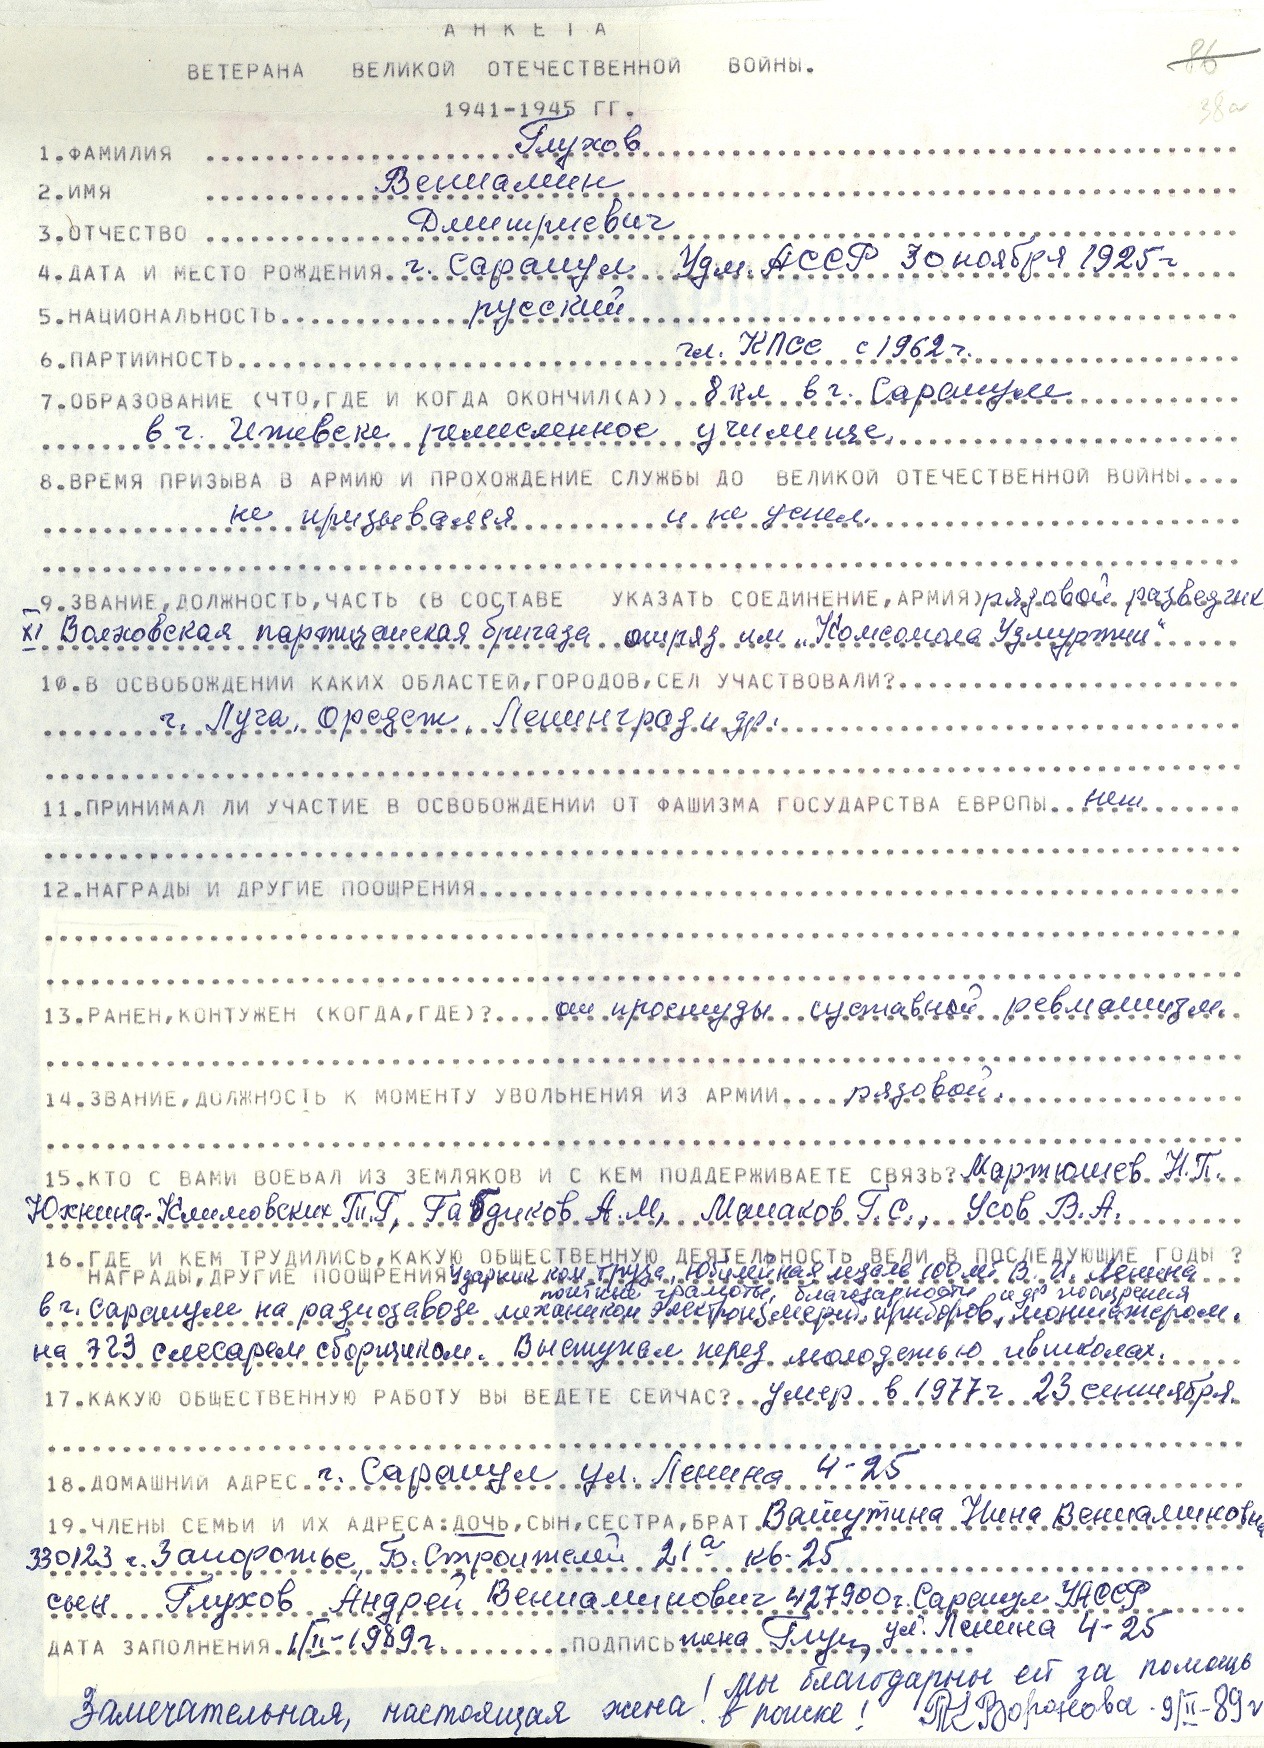 АНКЕТА
86
ВЕТЕРАНА ВЕЛИКОЙ ОТЕЧЕСТВЕННОЙ ВОЙНЫ.
1941-1945 ГГ.
38а
1.ФАМИЛИЯ Глухов
2.ИМЯ Вениамин
3.ОТЧЕСТВО Дмитриевич
4.ДАТА И МЕСТО РОЖДЕНИЯ г. Сарапул Удм. АССР 30 ноября 1925г
5.НАЦИОНАЛЬНОСТЬ русский
6.ПАРТИЙНОСТЬ чл. КПСС с 1962г.
7.ОБРАЗОВАНИЕ (ЧТО,ГДЕ И КОГДА ОКОНЧИЛ(А)) 8 кл в г. Сарапуле
в г. Ижевске ремесленное училище.
8.ВРЕМЯ ПРИЗЫВА В АРМИЮ И ПРОХОЖДЕНИЕ СЛУЖБЫ ДО ВЕЛИКОЙ ОТЕЧЕСТВЕННОЙ ВОЙНЫ....
не призывался и не успел.
9.ЗВАНИЕ,ДОЛЖНОСТЬ,ЧАСТЬ (В СОСТАВЕ УКАЗАТЬ СОЕДИНЕНИЕ,АРМИЯ) рядовой разведчик
XI Волховская партизанская бригада отряд им „Комсомола Удмуртии"
10.В ОСВОБОЖДЕНИИ КАКИХ ОБЛАСТЕЙ,ГОРОДОВ,СЕЛ УЧАСТВОВАЛИ?
г. Луга, Оредеж, Ленинград и др.
11.ПРИНИМАЛ ЛИ УЧАСТИЕ В ОСВОБОЖДЕНИИ ОТ ФАШИЗМА ГОСУДАРСТВА ЕВРОПЫ.. нет
12.НАГРАДЫ И ДРУГИЕ ПООЩРЕНИЯ
13.РАНЕН,КОНТУЖЕН (КОГДА,ГДЕ)?.... от простуды суставной ревматизм.
14.ЗВАНИЕ,ДОЛЖНОСТЬ К МОМЕНТУ УВОЛЬНЕНИЯ ИЗ АРМИИ.... рядовой.
15.КТО С ВАМИ ВОЕВАЛ ИЗ ЗЕМЛЯКОВ И С КЕМ ПОДДЕРЖИВАЕТЕ СВЯЗЬ? Мартюшев Н.П.
Юхнина-Климовских Т.Г, Габдиков А.М, Малаков Г.С., Усов В.А.
16.ГДЕ И КЕМ ТРУДИЛИСЬ,КАКУЮ ОБЩЕСТВЕННУЮ ДЕЯТЕЛЬНОСТЬ ВЕЛИ В ПОСЛЕДУЮЩИЕ ГОДЫ ?
НАГРАДЫ,ДРУГИЕ ПООЩРЕНИЯ Ударник ком. труда, Юбилейная медаль 100 лет В. И. Ленина
грамоты, благодарности и др поощрения
в г. Сарапуле на радиозаводе механиком электроизмерит. приборов, монтажером.
на 723 слесарем сборщиком. Выступал перед молодежью и в школах.
17.КАКУЮ ОБЩЕСТВЕННУЮ РАБОТУ ВЫ ВЕДЕТЕ СЕЙЧАС?.. умер в 1977г 23 сентября.
18.ДОМАШНИЙ АДРЕС г. Сарапул ул. Ленина 4-25
19.ЧЛЕНЫ СЕМЬИ И ИХ АДРЕСА:ДОЧЬ,СЫН,СЕСТРА,БРАТ Ватутина Нина Вениаминовна
330123 г. Запорожье, Б. Строителей 21а кв-25
сын Глухов Андрей Вениаминович 427900 г. Сарапул УАССР
ул. Ленина 4-25
ДАТА ЗАПОЛНЕНИЯ 1/II-1989г. ПОДПИСЬ жена Глух
Замечательная, настоящая жена! Мы благодарны ей за помощь
в поиске! Воронова 9/II-89г